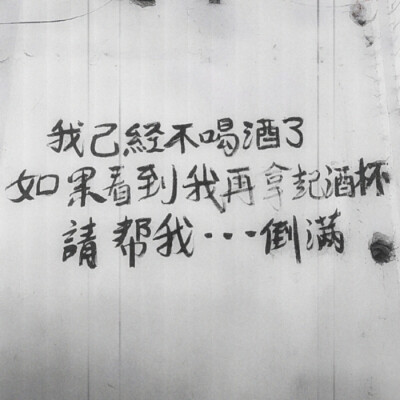 我已経不喝酒了
如果看到我再拿起酒杯
請帮我···倒滿